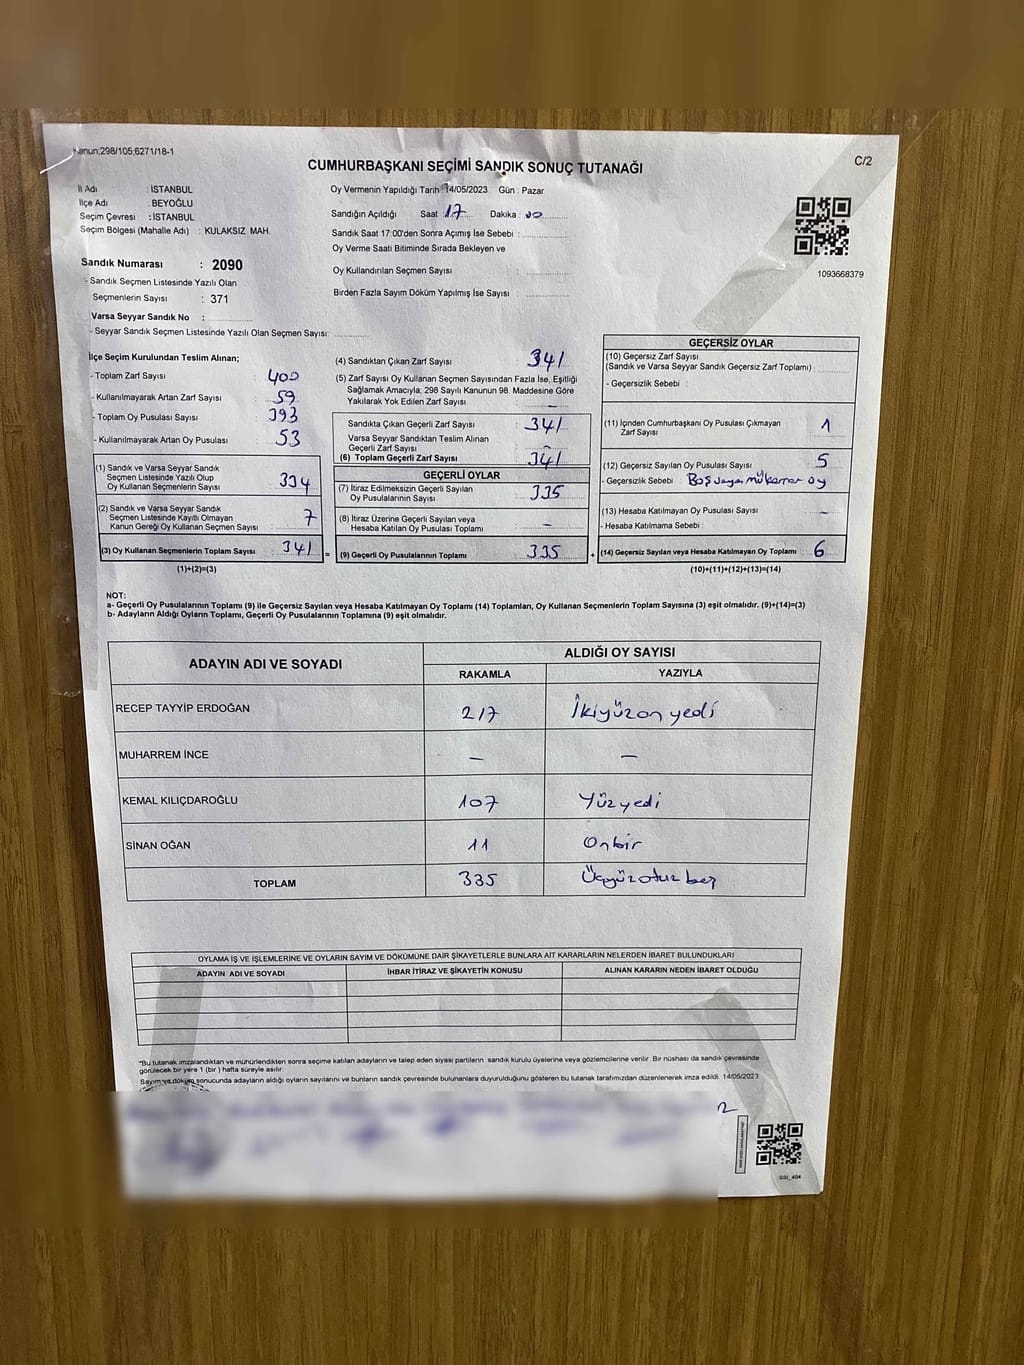 Kanun;298/105,6271/18-1
C/2
CUMHURBAŞKANI SEÇİMİ SANDIK SONUÇ TUTANAĞI
İl Adı : İSTANBUL
İlçe Adı : BEYOĞLU
Seçim Çevresi : İSTANBUL
Seçim Bölgesi (Mahalle Adı) : KULAKSIZ MAH.
Sandık Numarası : 2090
- Sandık Seçmen Listesinde Yazılı Olan
Seçmenlerin Sayısı : 371
Varsa Seyyar Sandık No :
- Seyyar Sandık Seçmen Listesinde Yazılı Olan Seçmen Sayısı:
Oy Vermenin Yapıldığı Tarih : 14/05/2023 Gün : Pazar
Sandığın Açıldığı Saat : 17 Dakika : 00
Sandık Saat 17:00'den Sonra Açımış İse Sebebi :
Oy Verme Saati Bitiminde Sırada Bekleyen ve
Oy Kullandırılan Seçmen Sayısı :
Birden Fazla Sayım Döküm Yapılmış İse Sayısı :
1093668379
İlçe Seçim Kurulundan Teslim Alınan;
- Toplam Zarf Sayısı : 400
- Kullanılmayarak Artan Zarf Sayısı : 59
- Toplam Oy Pusulası Sayısı : 393
- Kullanılmayarak Artan Oy Pusulası : 53
(1) Sandık ve Varsa Seyyar Sandık
Seçmen Listesinde Yazılı Olup
Oy Kullanan Seçmenlerin Sayısı : 334
(2) Sandık ve Varsa Seyyar Sandık
Seçmen Listesinde Kayıtlı Olmayan
Kanun Gereği Oy Kullanan Seçmen Sayısı : 7
(3) Oy Kullanan Seçmenlerin Toplam Sayısı : 341
(1)+(2)=(3)
=
(4) Sandıktan Çıkan Zarf Sayısı : 341
(5) Zarf Sayısı Oy Kullanan Seçmen Sayısından Fazla İse, Eşitliği
Sağlamak Amacıyla, 298 Sayılı Kanunun 98. Maddesine Göre
Yakılarak Yok Edilen Zarf Sayısı : –
Sandıkta Çıkan Geçerli Zarf Sayısı : 341
Varsa Seyyar Sandıktan Teslim Alınan
Geçerli Zarf Sayısı : –
(6) Toplam Geçerli Zarf Sayısı : 341
GEÇERLİ OYLAR
(7) İtiraz Edilmeksizin Geçerli Sayılan
Oy Pusulalarının Sayısı : 335
(8) İtiraz Üzerine Geçerli Sayılan veya
Hesaba Katılan Oy Pusulası Toplamı : –
(9) Geçerli Oy Pusulalarının Toplamı : 335
+
GEÇERSİZ OYLAR
(10) Geçersiz Zarf Sayısı
(Sandık ve Varsa Seyyar Sandık Geçersiz Zarf Toplamı) :
- Geçersizlik Sebebi :
(11) İçinden Cumhurbaşkanı Oy Pusulası Çıkmayan
Zarf Sayısı : 1
(12) Geçersiz Sayılan Oy Pusulası Sayısı : 5
- Geçersizlik Sebebi : Boş veya mükerrer oy
(13) Hesaba Katılmayan Oy Pusulası Sayısı : –
- Hesaba Katılmama Sebebi :
(14) Geçersiz Sayılan veya Hesaba Katılmayan Oy Toplamı : 6
(10)+(11)+(12)+(13)=(14)
NOT:
a- Geçerli Oy Pusulalarının Toplamı (9) ile Geçersiz Sayılan veya Hesaba Katılmayan Oy Toplamı (14) Toplamları, Oy Kullanan Seçmenlerin Toplam Sayısına (3) eşit olmalıdır. (9)+(14)=(3)
b- Adayların Aldığı Oyların Toplamı, Geçerli Oy Pusulalarının Toplamına (9) eşit olmalıdır.
ADAYIN ADI VE SOYADI
ALDIĞI OY SAYISI
RAKAMLA YAZIYLA
RECEP TAYYİP ERDOĞAN 217 İkiyüzon yedi
MUHARREM İNCE – –
KEMAL KILIÇDAROĞLU 107 Yüzyedi
SİNAN OĞAN 11 Onbir
TOPLAM 335 Üçyüzotuz beş
OYLAMA İŞ VE İŞLEMLERİNE VE OYLARIN SAYIM VE DÖKÜMÜNE DAİR ŞİKAYETLERLE BUNLARA AİT KARARLARIN NELERDEN İBARET BULUNDUKLARI
ADAYIN ADI VE SOYADI İHBAR İTİRAZ VE ŞİKAYETİN KONUSU ALINAN KARARIN NEDEN İBARET OLDUĞU
*Bu tutanak imzalandıktan ve mühürlendikten sonra seçime katılan adayların ve talep eden siyasi partilerin sandık kurulu üyelerine veya gözlemcilerine verilir. Bir nüshası da sandık çevresinde
görülecek bir yere 1 (bir) hafta süreyle asılır.
Sayım ve döküm sonucunda adayların aldığı oyların sayılarını ve bunların sandık çevresinde bulunanlara duyurulduğunu gösteren bu tutanak tarafımızdan düzenlenerek imza edildi. 14/05/2023
SSI_404